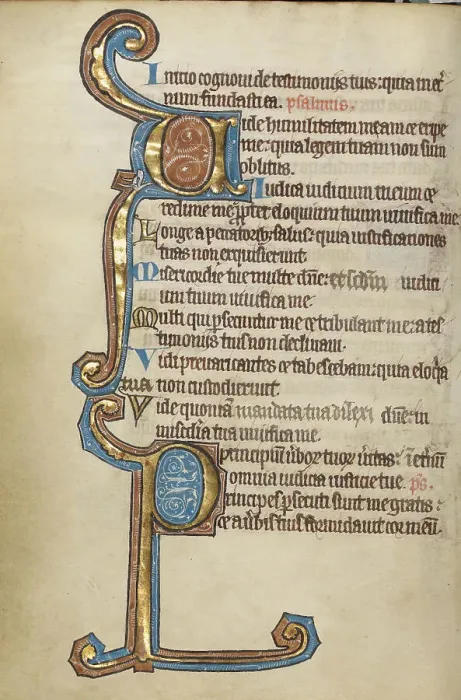 Initio cognoui de testimoniis tuis: quia in et̾
num fundasti ea. psalmus.
Vide humilitatem meam ⁊ eripe
me: quia legem tuam non sum
oblitus.
Iudica iudicium meum ⁊
redime me ꝓpter eloquium tuum uiuifica me.
Longe a peccatoribꝫ salus: quia iustificationes
tuas non exquisierunt.
Misericordie tue multe dn̄e: iudici
um tuum uiuifica me.
Multi qui ꝑsecuntur me ⁊ tribulant me: a tes
timoniis tuis non declinaui.
Vidi preuaricantes ⁊ tabescebam: quia eloq̾a
tua non custodierunt.
Vide quoniā mandata tua dilexi dn̄e: in
mis̄dia tua uiuifica me.
Principiū ūboꝝ tuoꝝ ūitas: ī et̾nū
omnia iudicia iusticie tue. ps̄.
Principes ꝑsecuti sunt me gratis:
⁊ a ūbis tuis formidauit cor meū.